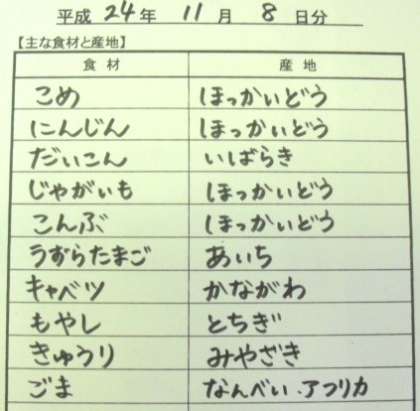 平成 24年 11月 8日分
【主な食材と産地】
食材 産地
こめ ほっかいどう
にんじん ほっかいどう
だいこん いばらき
じゃがいも ほっかいどう
こんぶ ほっかいどう
うずらたまご あいち
キャベツ かながわ
もやし とちぎ
きゅうり みやざき
ごま なんべい.アフリカ